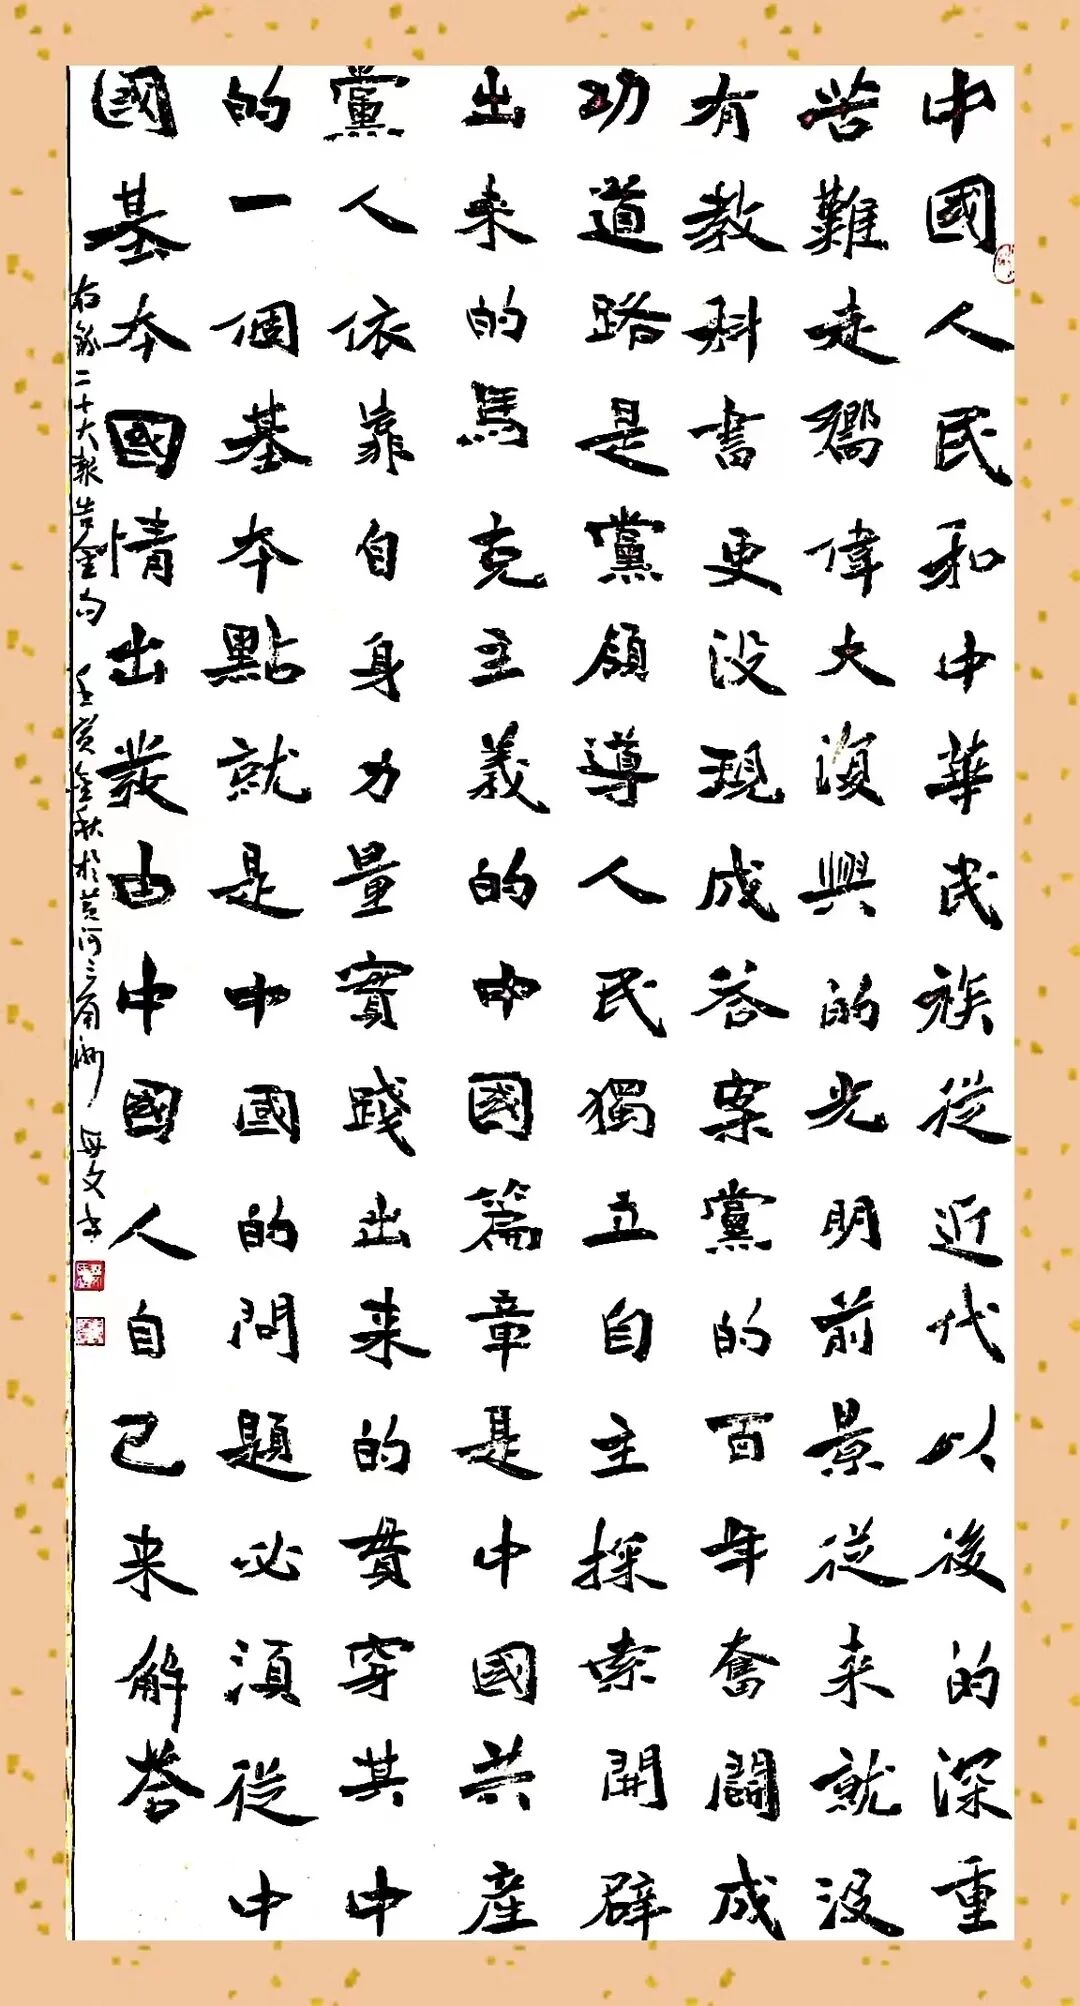 中國人民和中華民族從近代以後的深重
苦難走嚮偉大復興的光明前景從来就没
有教科書更没現成答案黨的百年奮鬭成
功道路是黨領導人民獨立自主探索開辟
出来的馬克主義的中國篇章是中國共産
黨人依靠自身力量實踐出来的貫穿其中
的一個基本點就是中國的問題必須從中
國基本國情出發由中國人自己来解答
右錄二十大報告金句 壬寅金秋於黄河三角洲 文书